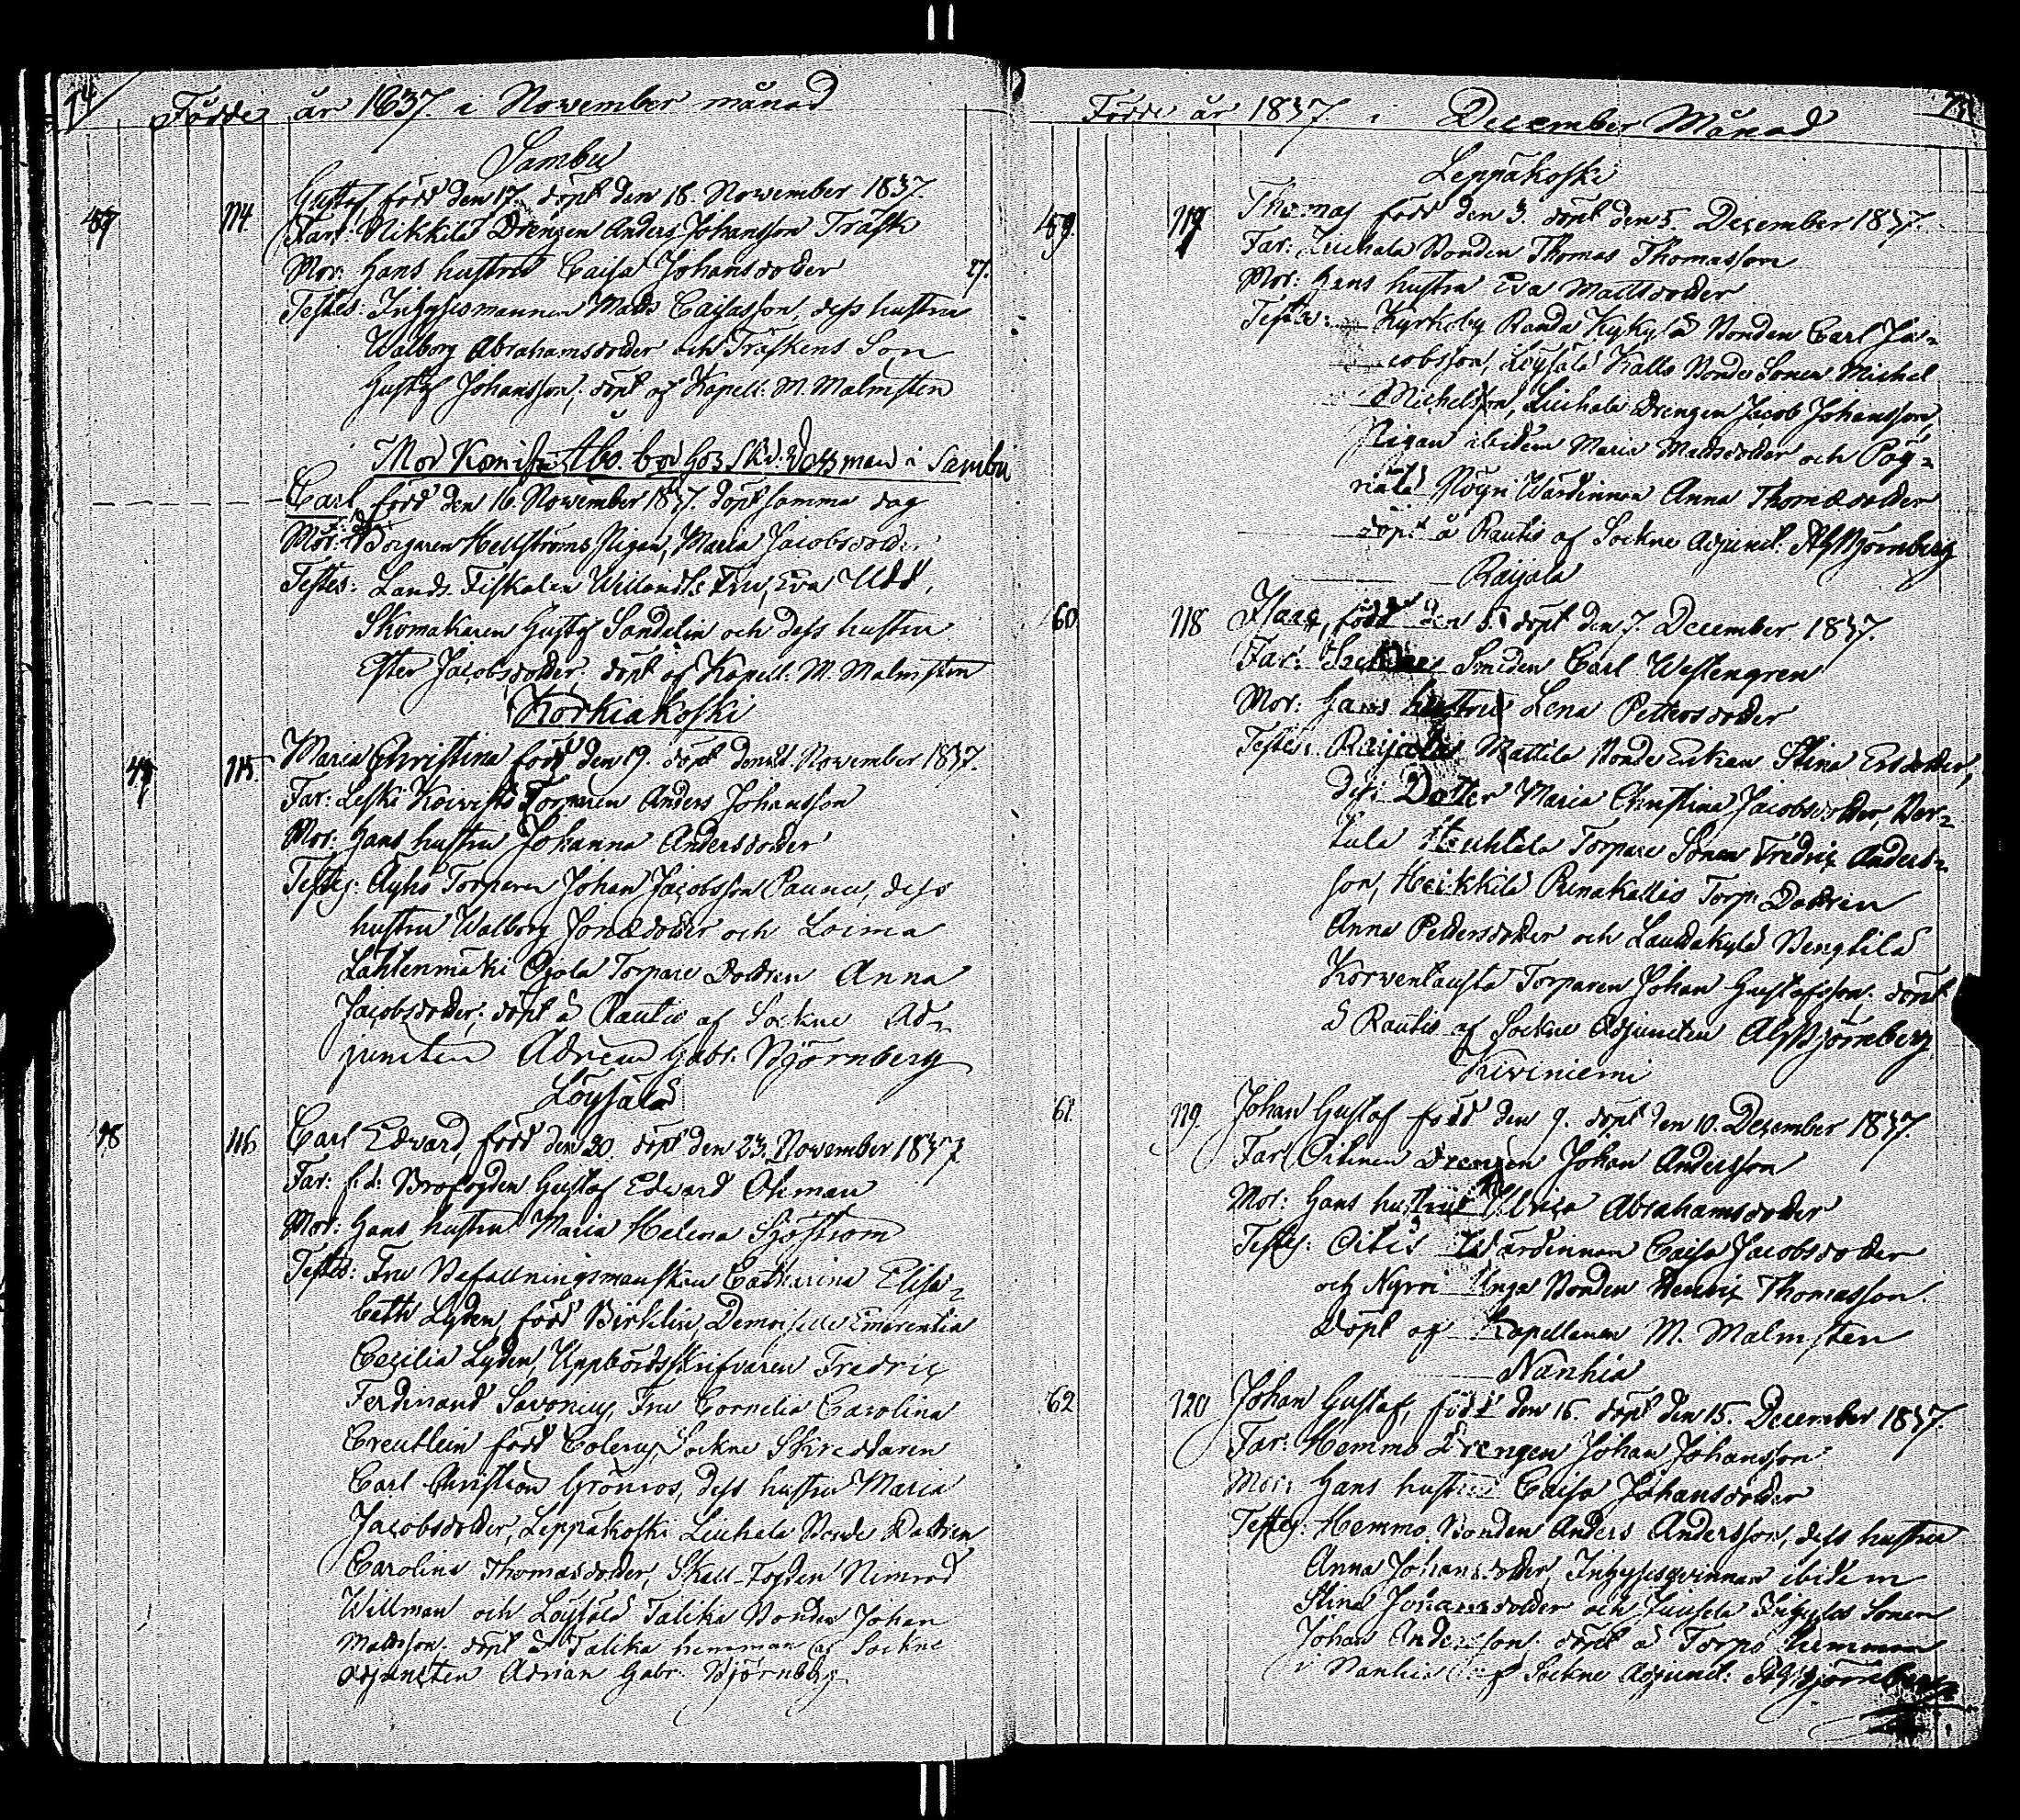 74
Födde år 1837. i November månad
Sambu
58 114. Gustaf född den 17. döpt den 18. November 1837.
Far: Nikkilä Drengen Anders Johansson Träsk
Mor: Hans hustru Caisa Johansdotter 27.
Testes: Inhysesmannen Matts Caisasson, dess hustru
Walborg Abrahamsdotter och Träskens Son
Gustaf Johansson; döpt af Kapell. M. Malmsten
Mod Åbo. bor hos Sk. man i Sambu
Carl, född den 16. November 1837. döpt samma dag
Mor: Borgaren Hellströms Pigan, Maria Jacobsdotter
Testes: Lands Fiskalen Willands Fru, Eva Udd,
Skomakaren Gustaf Sandelin och dess hustru
Ester Jacobsdotter; döpt af Kapell. M. Malmsten
Korkiakoski
47 115. Maria Christina född den 19. döpt den November 1837.
Far: Leski Koivisto Torparen Anders Johansson
Mor: Hans hustru Johanna Andersdotter
Testes: Äyhö Torparen Johan Jacobsson Paunu, dess
hustru Walborg Jonædotter och Loima
Lähtenmäki Ojola Torpare Dottren Anna
Jacobsdotter; döpt å Rautio af Sockne Ad-
juncten Adrian Gabr. Björnberg
Löysälä
48 116 Carl Edvard, född den 20. döpt den 23. November 1837
Far: f.d. Brofogden Gustaf Edvard Öhman
Mor: Hans hustru Maria Helena Sjöström
Testes: Fru Befallningsmanskan Catharina Elisa-
beth Lyden, född Birklin, Demoiselle Emerentia
Cecilia Lyden, Uppbördsskrifvaren Fredric
Ferdinand Savonius, Fru Cornelia Carolina
Creutlein född Colerus, Sockne Skreddaren
Carl Christian Grönroos, dess hustru Maria
Jacobsdotter, Leppäkoski Liuhala Bonde Dottren
Carolina Thomasdotter, Skall-Fogden Nimrod
Willman och Löysälä Talika Bonden Johan
Mattsson. döpt å Talika hemman af Sockne
Adjuncten Adrian Gabr. Björnberg
75
Födde år 1837. i December Månad
Leppäkoski
59. 117 Thomas född den 3. döpt den 5. December 1837.
Far: Liuhala Bonden Thomas Thomasson
Mor: Hans hustru Eva Mattsdotter
Testes: Kyrkoby Randa Kykylä Bonden Carl Ja-
cobsson, Löysälä Kallo Bonde Sonen Michel
Michelsson, Liuhala Drengen Jacob Johansson,
Pigan ibidem Maria Mattsdotter och Pög-
riälä Nögri Wärdinnan Anna Thomædotter
döpt å Rautio af Sockne Adjunct: AG Björnberg
Raijala
60 118 Isaac, född den 5. döpt den 7. December 1837.
Far: Smeden Carl Westengren
Mor: Hans hustru Lena Pettersdotter
Testes: Raijala Mattila Bonde Enkan Stina Ersdotter,
dess Dotter Maria Christina Jacobsdotter, Per-
tula Torpare Sonen Fredric Anders-
son, Heikkilä Punakallio Torp: Dottren
Anna Pettersdotter och Lautakylä Bengtilä
Korwentausta Torparen Johan Gustafsson. döpt
å Rautio af Sockne Adjuncten AG Björnberg
Kiviniemi
61. 119. Johan Gustaf född den 9. döpt den 10. December 1837.
Far: Oitinen Drengen Johan Andersson
Mor: Hans hustru Ulrica Abrahamsdotter
Testes: Oitis Wärdinnan Caisa Jacobsdotter
och Nyroi Unga Bonden Henric Thomasson.
Döpt af Kapellanen M. Malmsten
Nanhia
62 120 Johan Gustaf, född den 15. döpt den 15. December 1837.
Far: Hemmo Drengen Johan Johansson
Mor: Hans hustru Caisa Johansdotter
Testes: Hemmo Bonden Anders Andersson, dess hustru
Anna Johansdotter, Inhysesqvinnan ibidem
Stina Johansdotter och Inhyses Sonen
Johan Andersson. döpt å Torpo hemman
i Nanhia af Sockne Adjunct: AG Björnberg